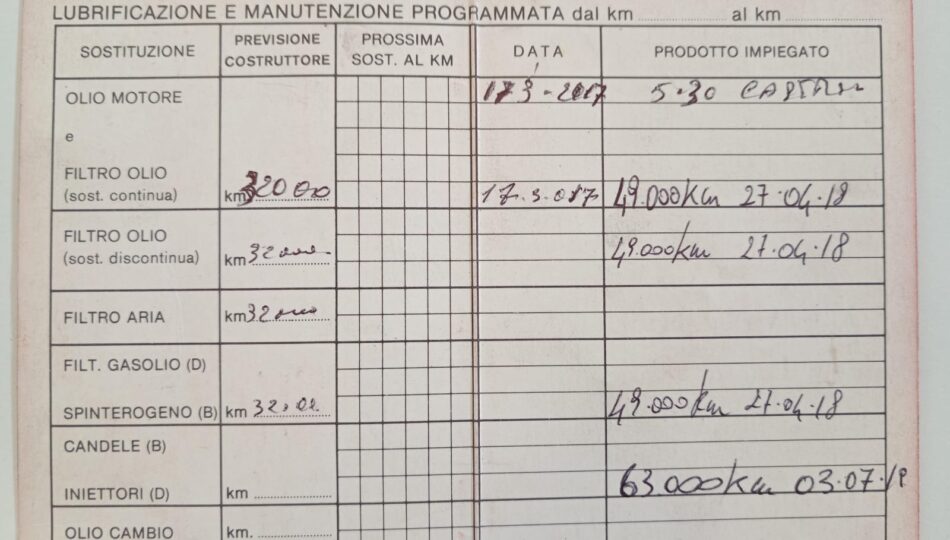 LUBRIFICAZIONE E MANUTENZIONE PROGRAMMATA dal km ........ al km ........
SOSTITUZIONE PREVISIONE COSTRUTTORE PROSSIMA SOST. AL KM DATA PRODOTTO IMPIEGATO
OLIO MOTORE 5.30
e
FILTRO OLIO
(sost. continua) km 32000 49.000km 27.04.18
FILTRO OLIO
(sost. discontinua) km 49.000km 27.04.18
FILTRO ARIA km
FILT. GASOLIO (D)
SPINTEROGENO (B) km 49.000km 27.04.18
CANDELE (B)
INIETTORI (D) km ........ 63.000km 03.07
OLIO CAMBIO km. ........